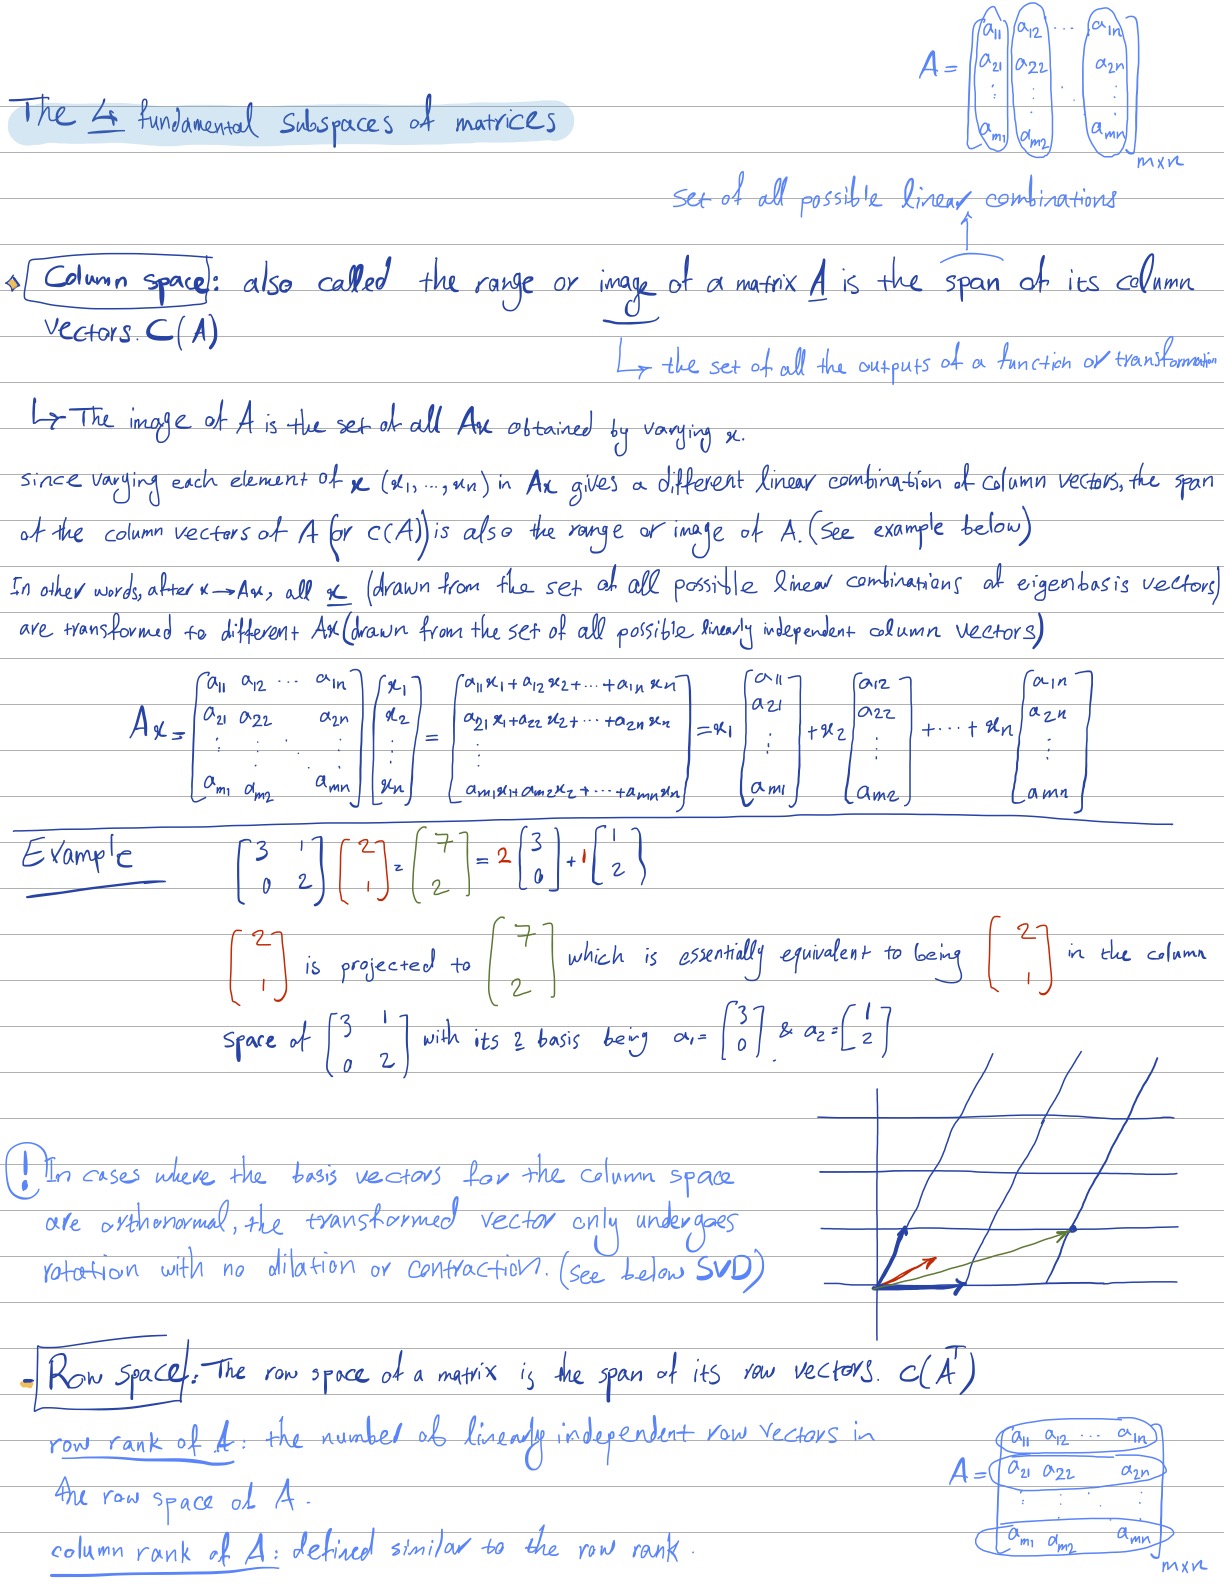 A = [a11 a12 ... a1n
a21 a22 a2n
⋮ ⋮ ⋱ ⋮
am1 am2 amn] m×n
The 4 fundamental subspaces of matrices
set of all possible linear combinations
Column space: also called the range or image of a matrix A is the span of its column
vectors. C(A)
↳ the set of all the outputs of a function or transformation
↳ The image of A is the set of all Ax obtained by varying x.
since varying each element of x (x1, ..., xn) in Ax gives a different linear combination of column vectors, the span
of the column vectors of A (or C(A)) is also the range or image of A. (See example below)
In other words, after x → Ax, all x (drawn from the set of all possible linear combinations of eigenbasis vectors)
are transformed to different Ax (drawn from the set of all possible linearly independent column vectors)
Ax = [a11 a12 ... a1n; a21 a22 a2n; ⋮ ⋮ ⋱ ⋮; am1 am2 amn] [x1; x2; ⋮; xn] = [a11x1+a12x2+...+a1nxn; a21x1+a22x2+...+a2nxn; ⋮; am1x1+am2x2+...+amnxn] = x1 [a11; a21; ⋮; am1] + x2 [a12; a22; ⋮; am2] + ... + xn [a1n; a2n; ⋮; amn]
Example [3 1; 0 2] [2; 1] = [7; 2] = 2 [3; 0] + 1 [1; 2]
[2; 1] is projected to [7; 2] which is essentially equivalent to being [2; 1] in the column
space of [3 1; 0 2] with its 2 basis being a1 = [3; 0] & a2 = [1; 2]
! In cases where the basis vectors for the column space
are orthonormal, the transformed vector only undergoes
rotation with no dilation or contraction. (see below SVD)
- Row space: The row space of a matrix is the span of its row vectors. C(Aᵀ)
row rank of A: the number of linearly independent row vectors in
the row space of A.
column rank of A: defined similar to the row rank.
A = [a11 a12 ... a1n
a21 a22 a2n
⋮ ⋮ ⋱ ⋮
am1 am2 amn] m×n